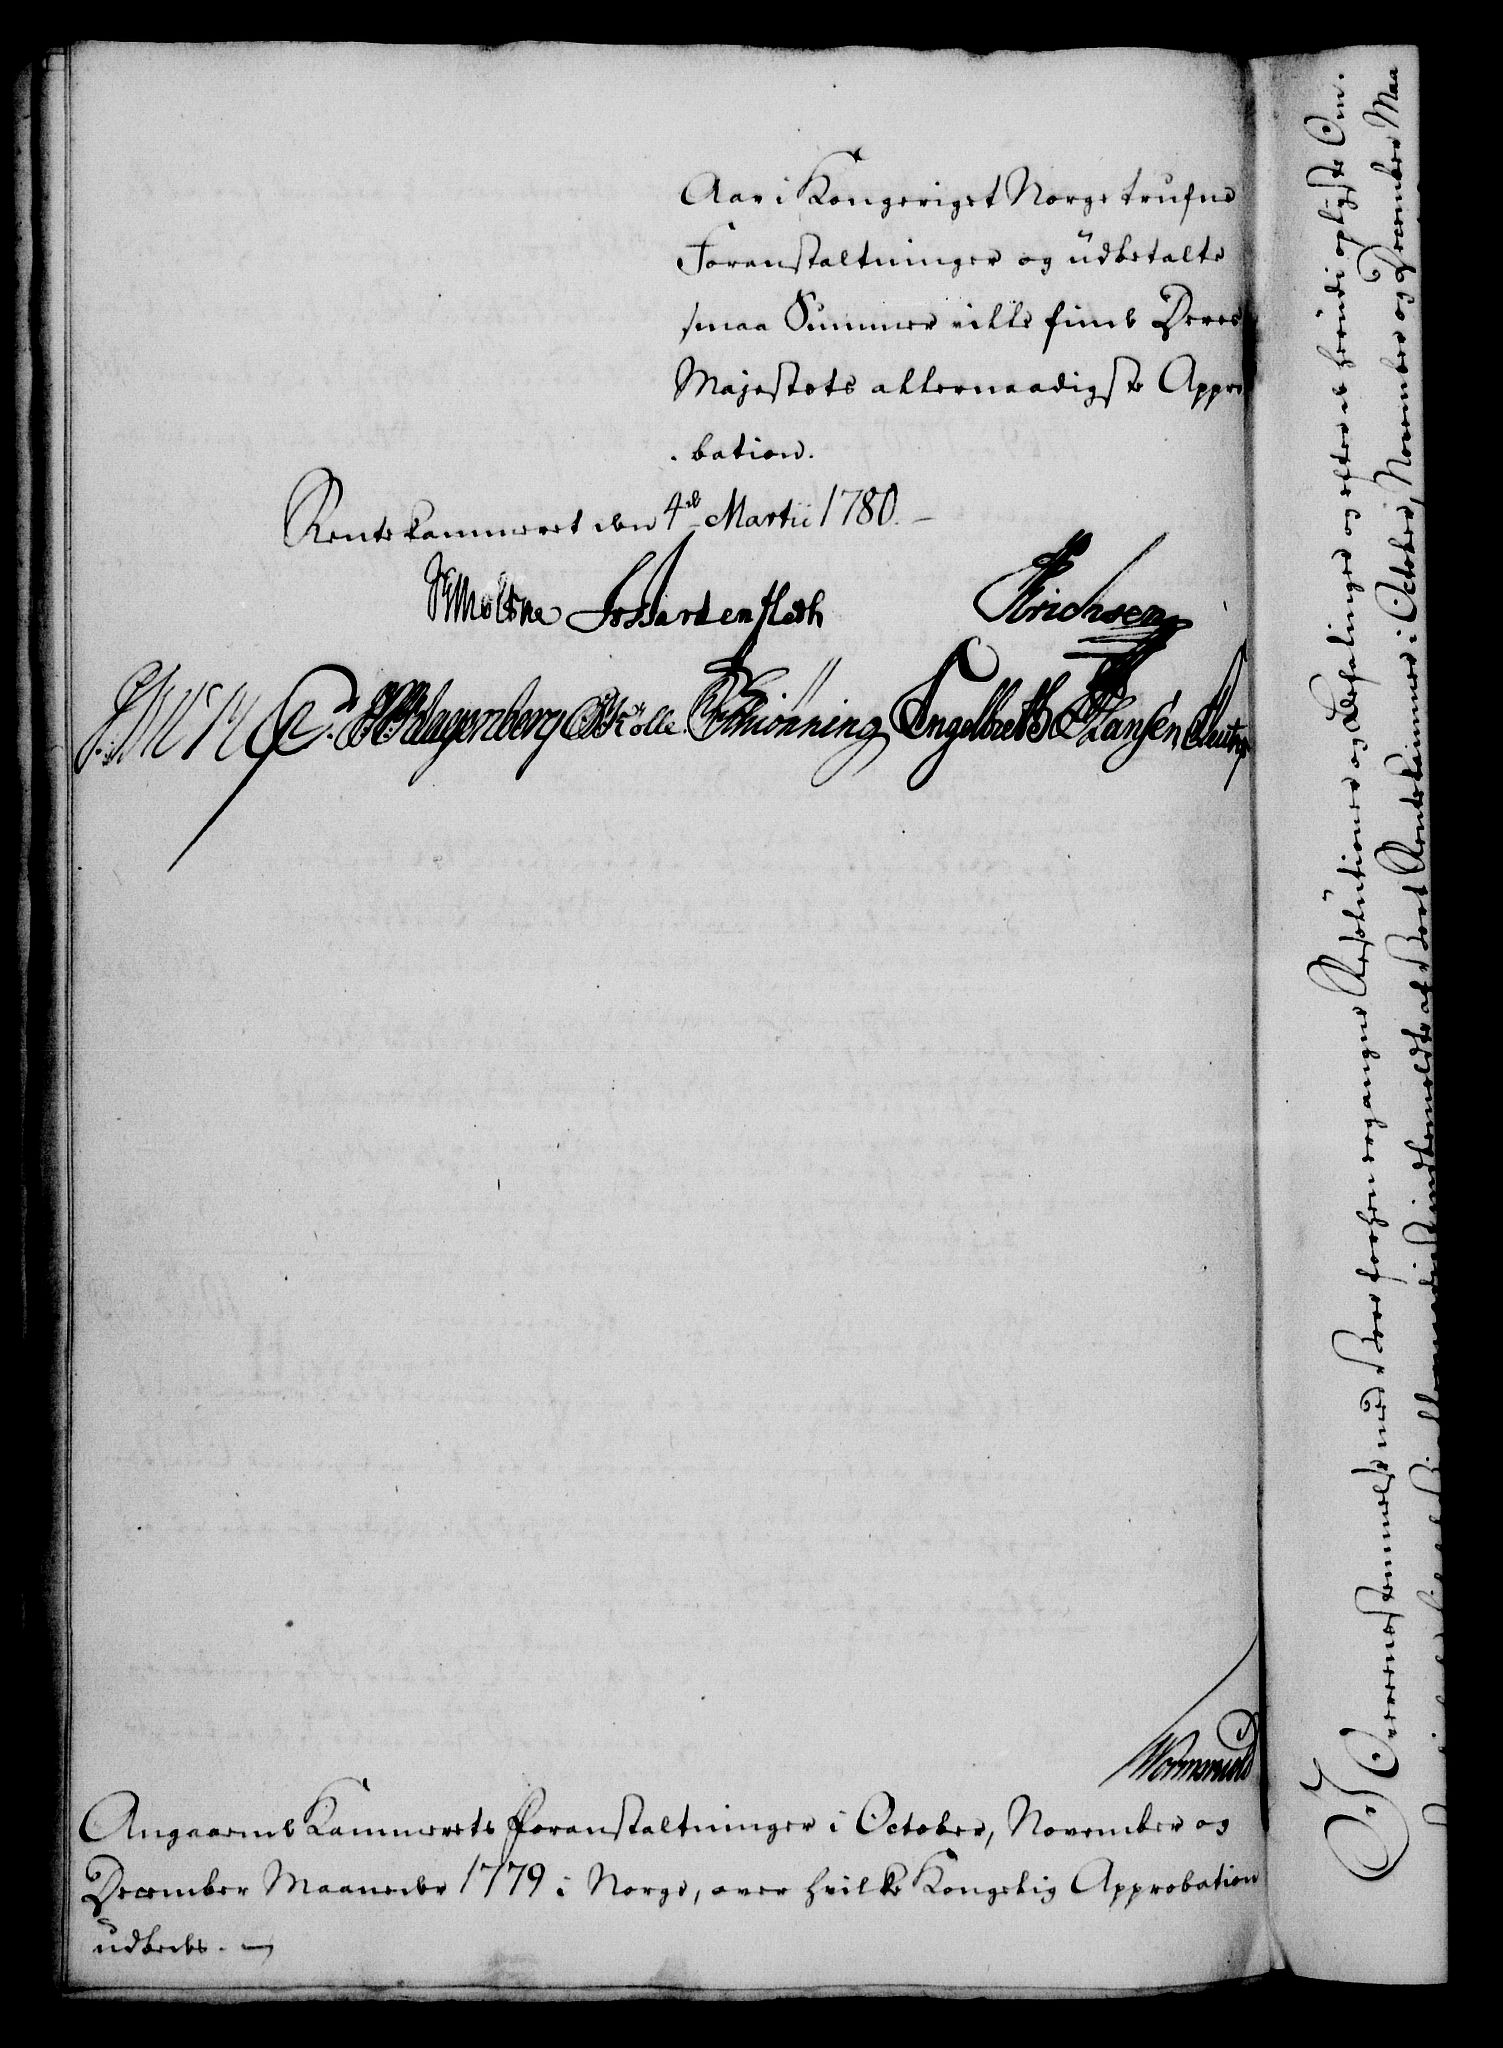 Aar i Kongeriget Norge trufne
Foranstaltninger og üdbetalte
smaa Summer ville finde Deres
Majestets allernaadigste Appro
bation.
Rentekammeret den 4de Martii 1780.
GMoltke Hardenfleth Erichsen
Selmer Klagenberg Kølle Schiönning Engelbreth Hansen
Wormskiold
Angaaende Kammerets Foranstaltninger i October, November og
December Maaneder 1779 i Norge, over hvilke Kongelig Approbation
üdbedes.
I Overeensstemmelse med de Vore forhen ergangne Resolütioner og Befalinger og efter de herüdi oplyste Om-
allernaadigst indbemeldte af Vort Rentekammer i October, November og December Maa